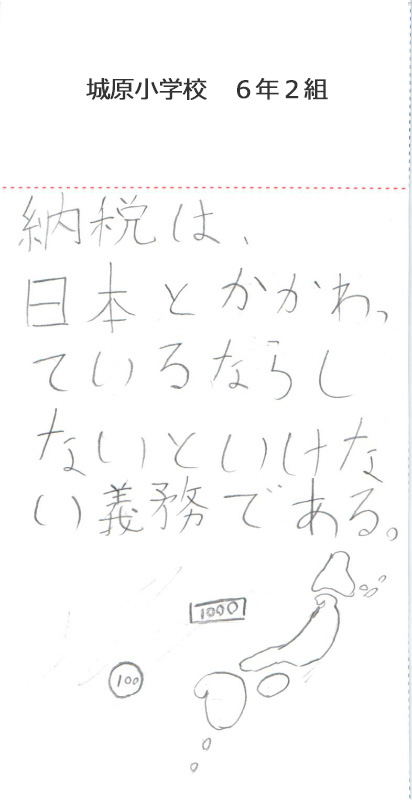 城原小学校　６年２組
納税は、
日本とかかわっ
ているならし
ないといけな
い義務である。
1000
100